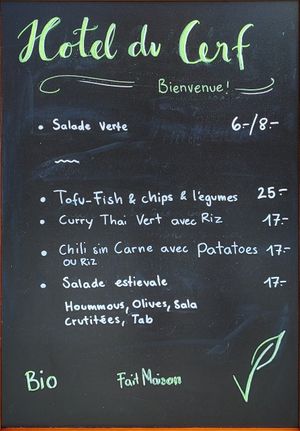 Hotel du Cerf
Bienvenue!
• Salade verte 6.-/8.-
• Tofu-Fish & chips & légumes 25.-
• Curry Thai Vert avec Riz 17.-
• Chili sin Carne avec patatoes 17.-
ou Riz
• Salade estievale 17.-
Hoummous, Olives, Sala
Crutitées, Tab
Bio Fait Maison